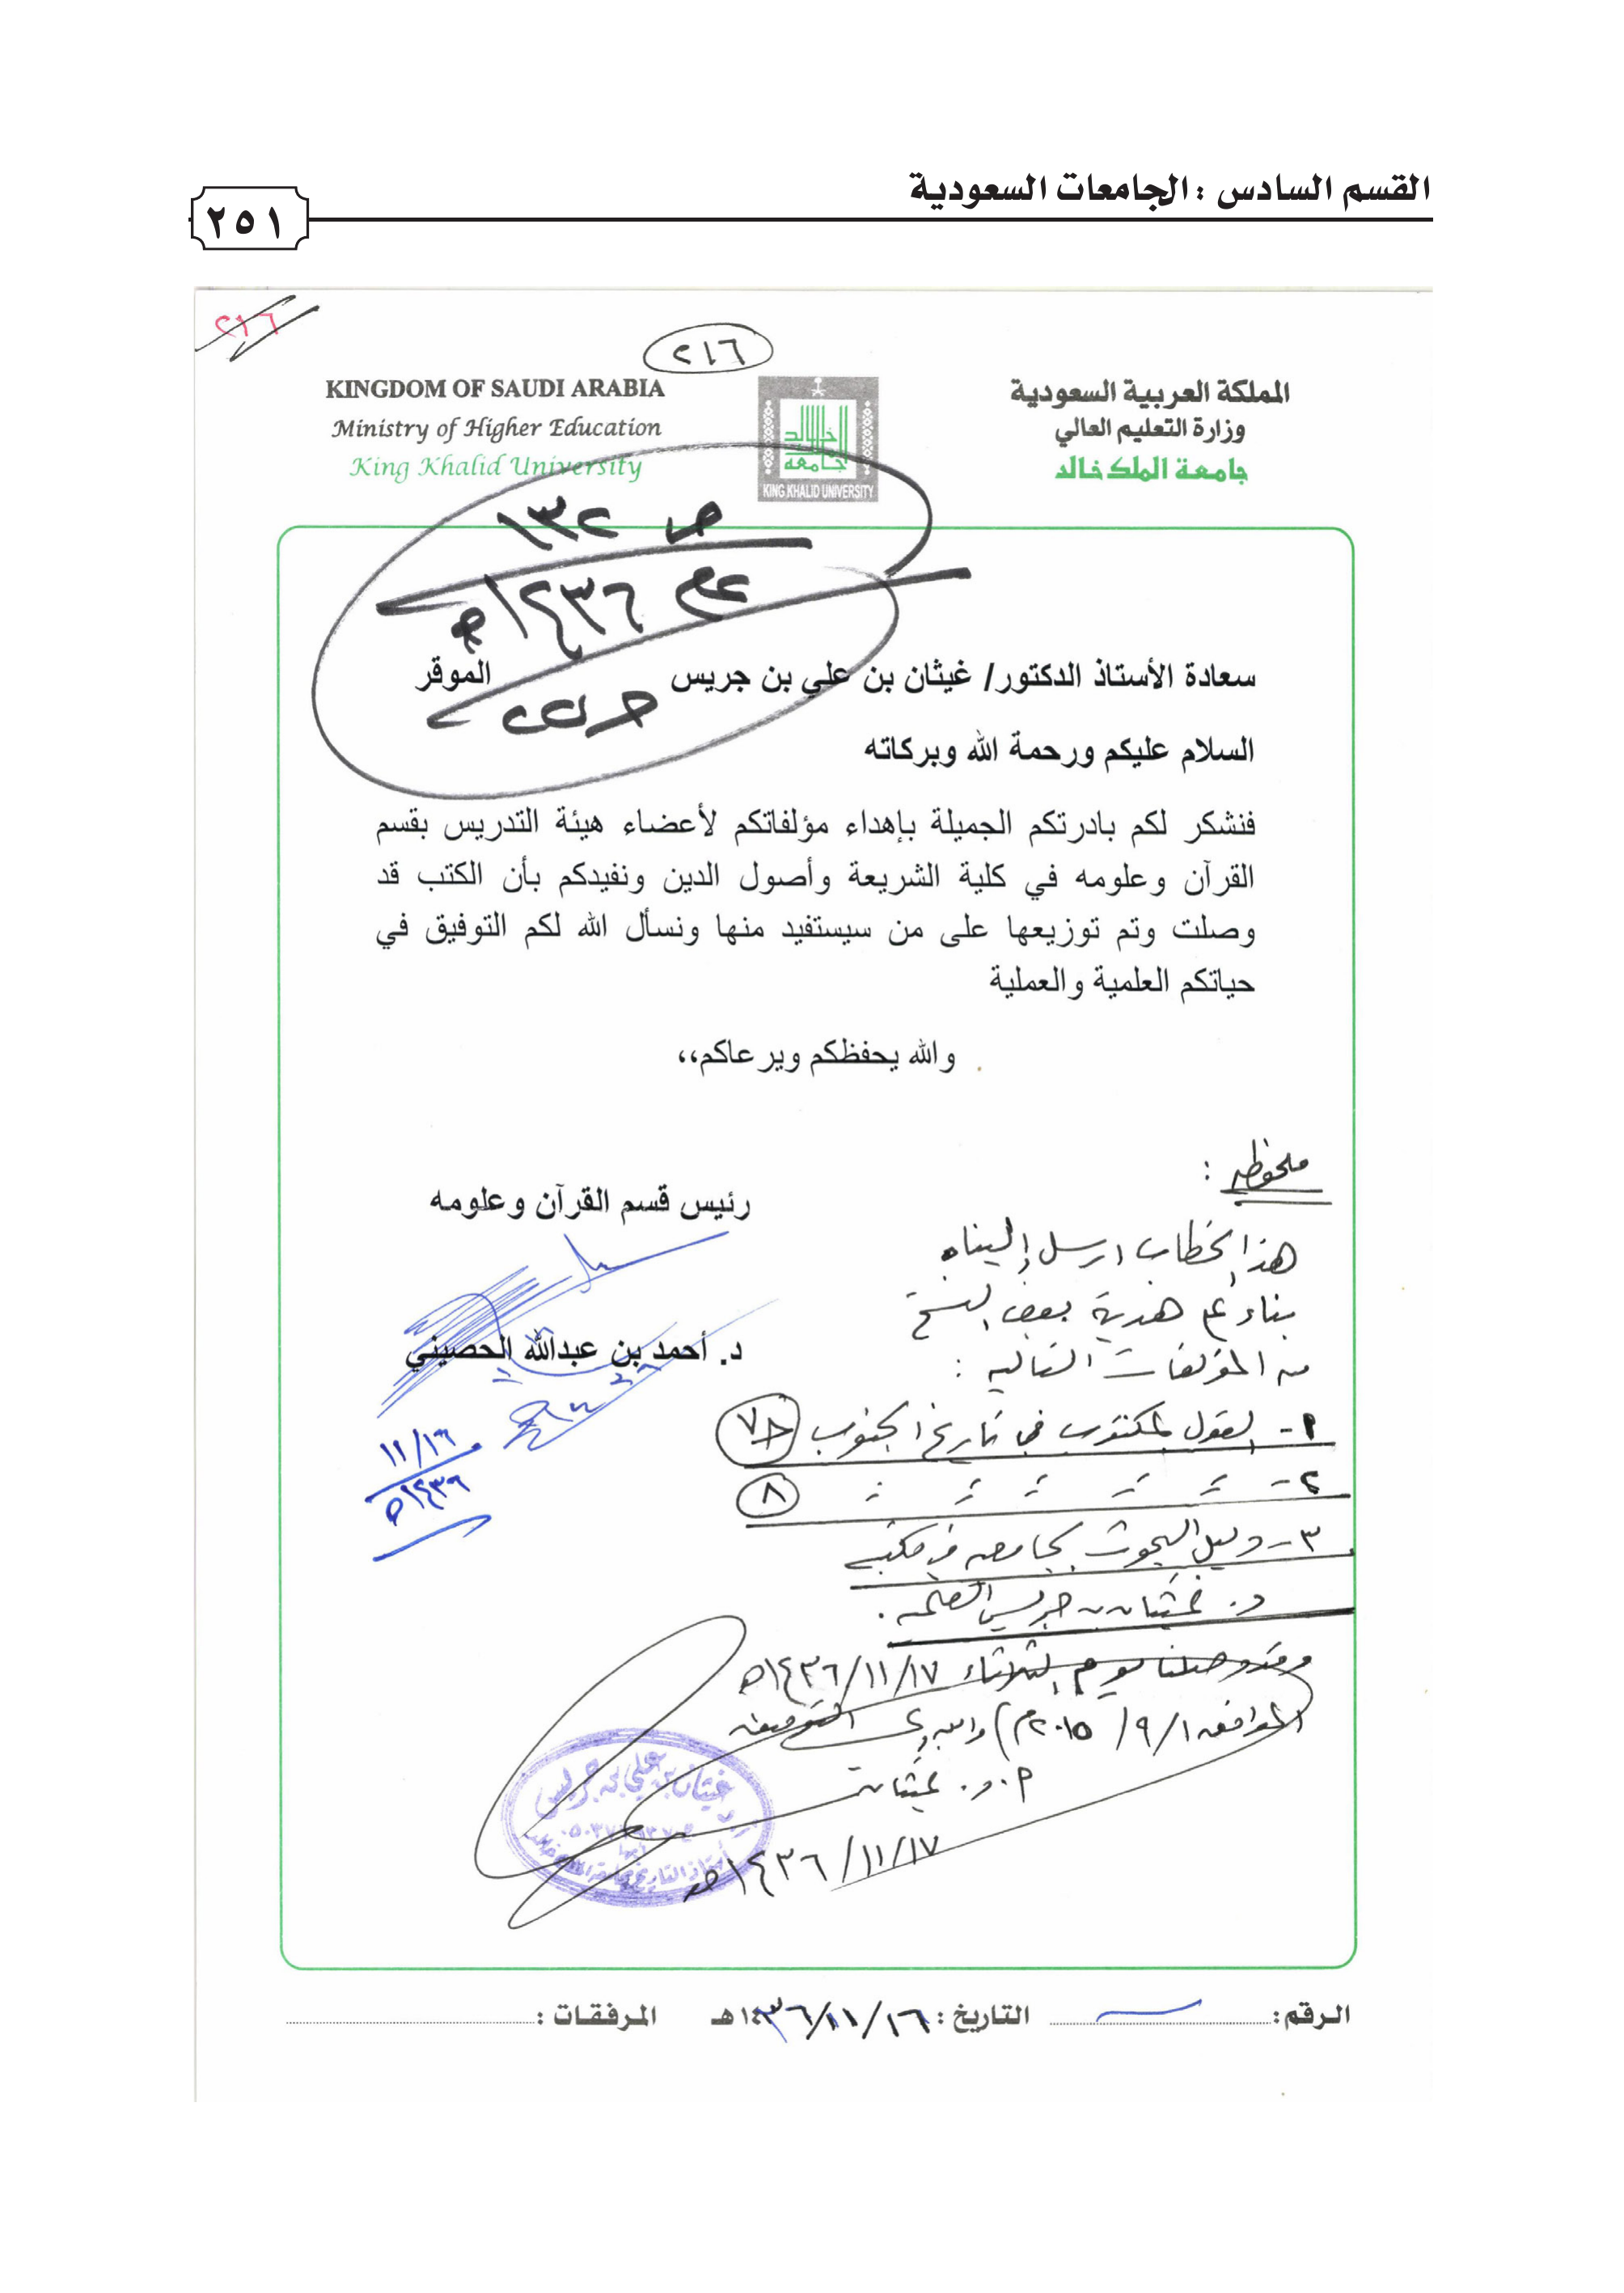 القسم السادس : الجامعات السعودية
٢٥١
٢١٦
٢١٦
المملكة العربية السعودية
وزارة التعليم العالي
جامعة الملك خالد
KINGDOM OF SAUDI ARABIA
Ministry of Higher Education
King Khalid University
جامعة الملك خالد
KING KHALID UNIVERSITY
ص ١٣٢
عام ١٤٣٦هـ
سعادة الأستاذ الدكتور/ غيثان بن علي بن جريس الموقر
السلام عليكم ورحمة الله وبركاته
فنشكر لكم بادرتكم الجميلة بإهداء مؤلفاتكم لأعضاء هيئة التدريس بقسم
القرآن وعلومه في كلية الشريعة وأصول الدين ونفيدكم بأن الكتب قد
وصلت وتم توزيعها على من سيستفيد منها ونسأل الله لكم التوفيق في
حياتكم العلمية والعملية
والله يحفظكم ويرعاكم،،
رئيس قسم القرآن وعلومه
د. أحمد بن عبدالله الحصيني
١١/١٦
١٤٣٦هـ
ملحوظة :
هذا الخطاب ارسل إلينا
بناء على هدية بعض النسخ
من المؤلفات التالية :
١- القول المكتوب في تاريخ الجنوب
٢- = = = = = ٨
٣- دليل البحوث الجامعية في مكتبة
د. غيثان بن جريس العلمية .
وقد وصلنا يوم الثلاثاء ١٤٣٦/١١/١٧هـ
الموافق ٩/١/ ٢٠١٥م) والله ولي التوفيق
أ.د. غيثان
١٤٣٦/١١/١٧هـ
غيثان بن علي بن جريس
أبها
الرقم: التاريخ: ١٤٣٦/١١/١٦هـ المرفقات: